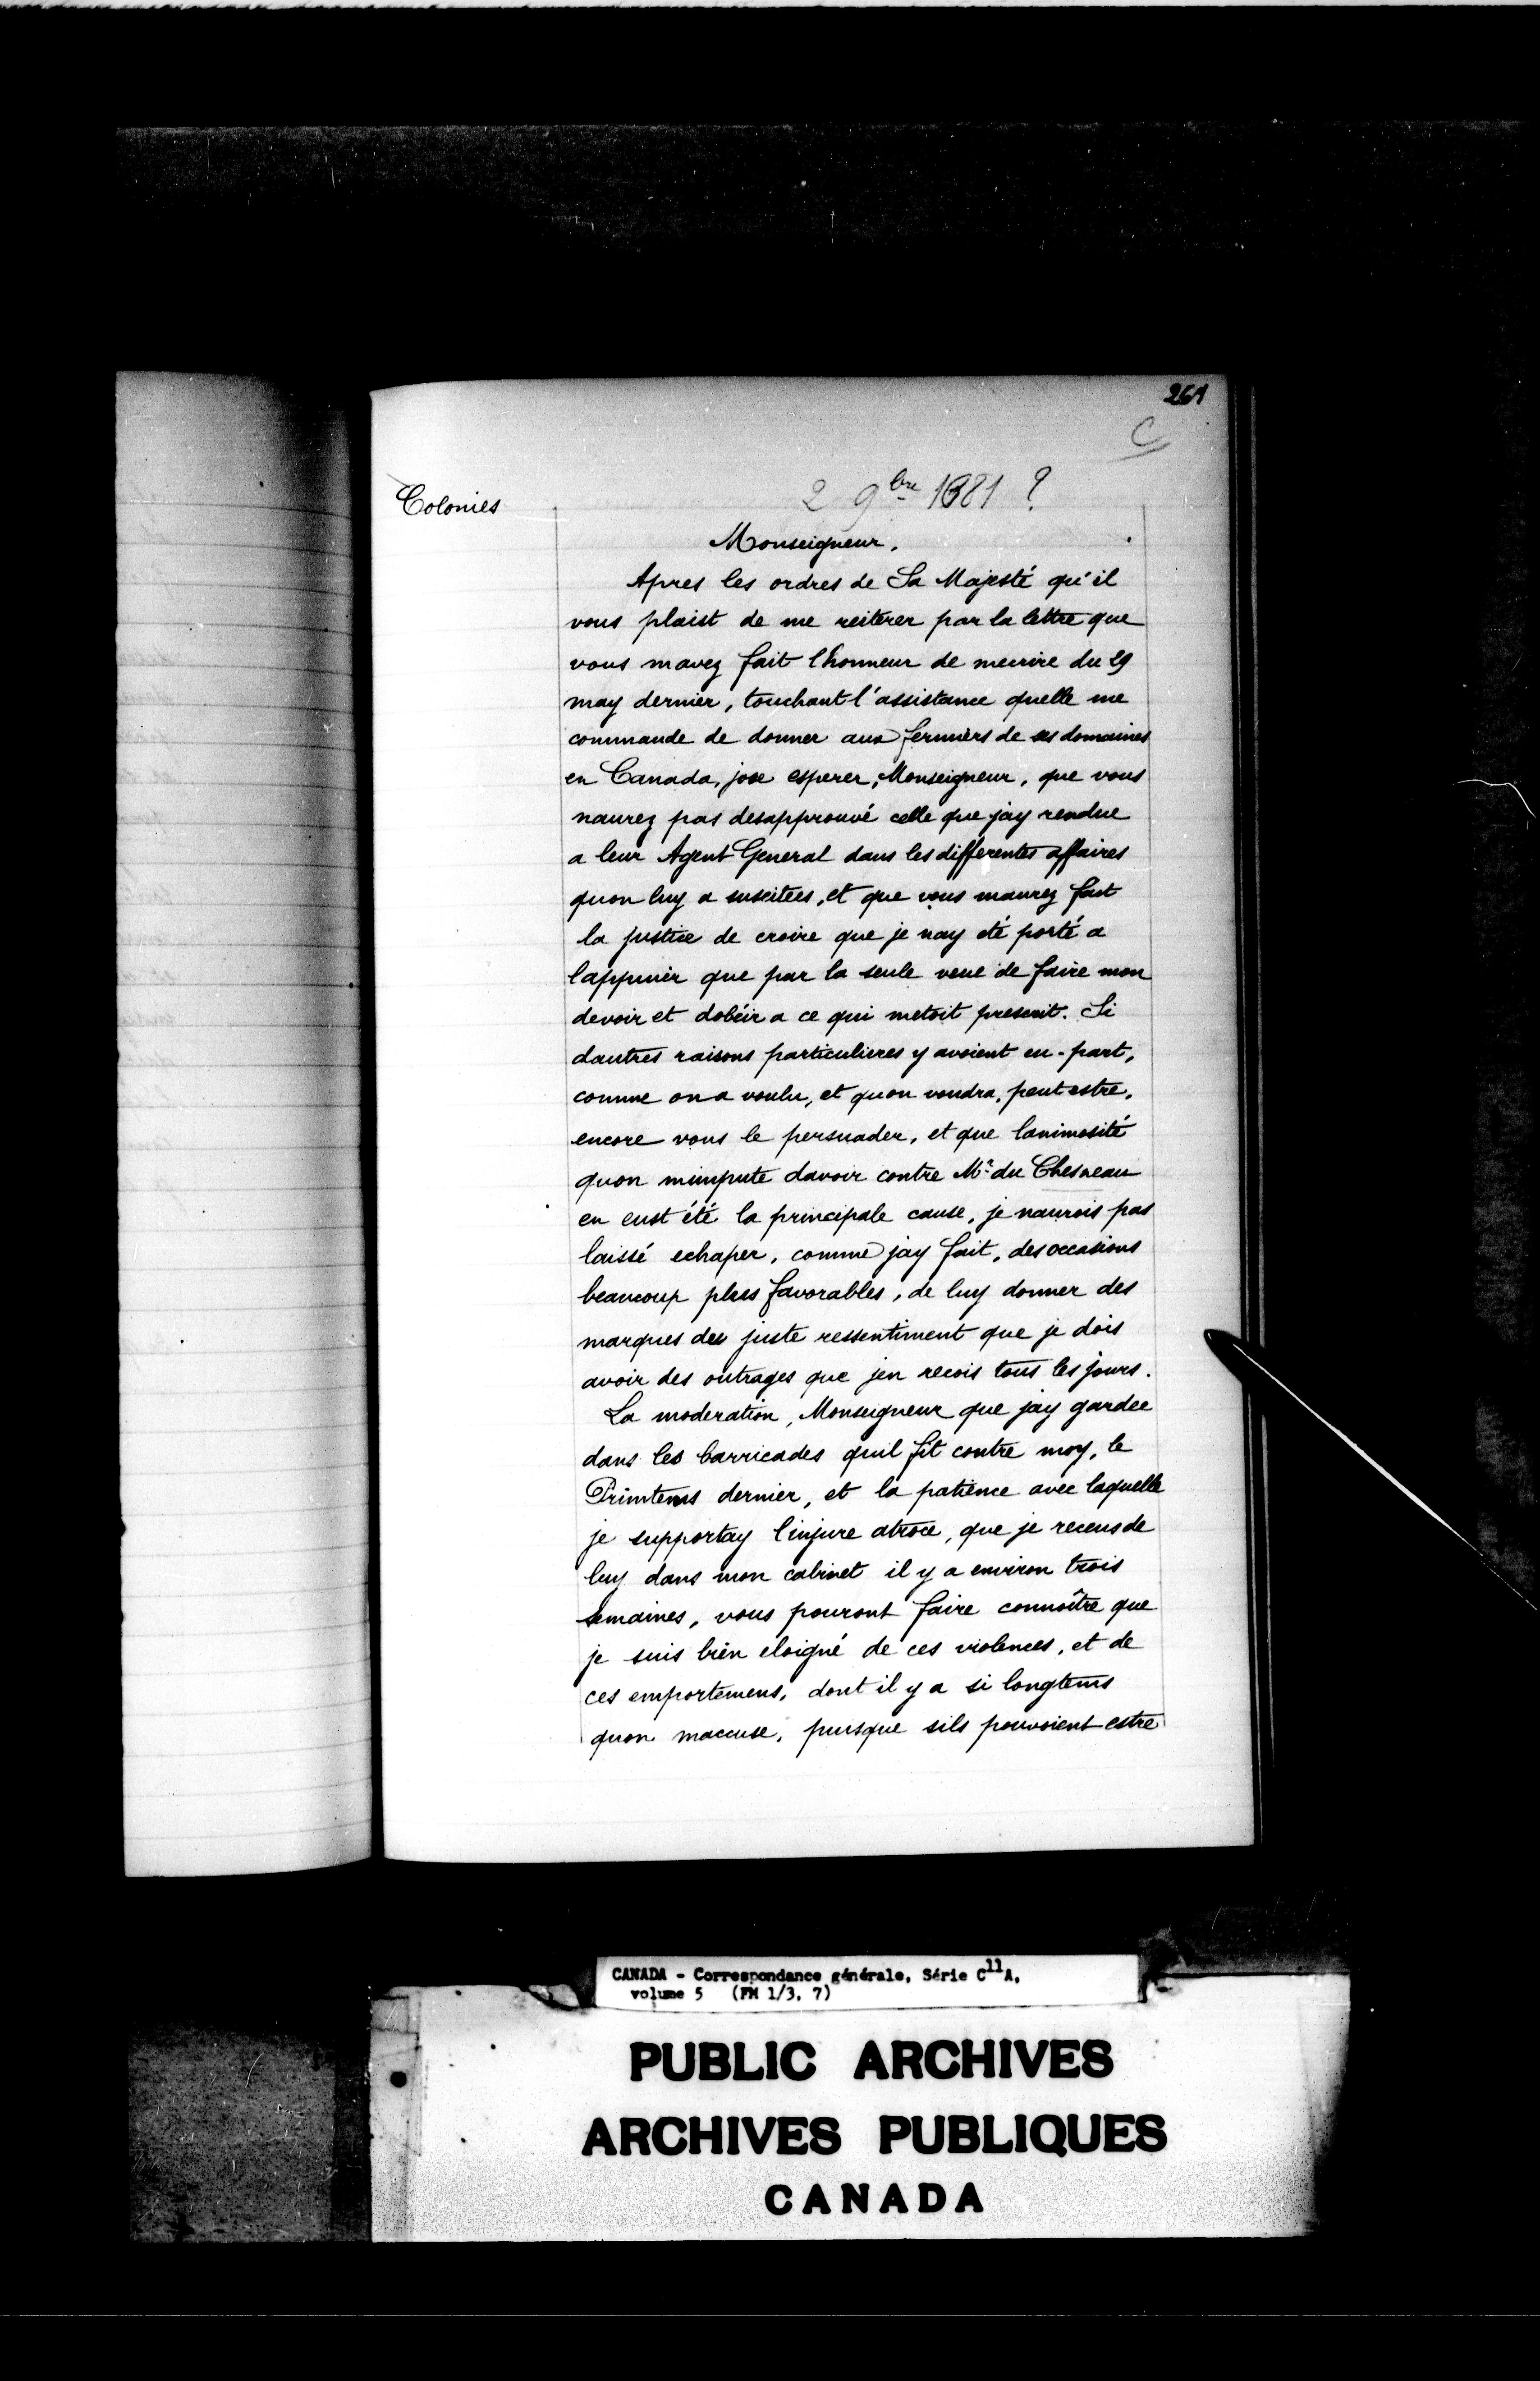 261
C
Colonies
2 9bre 1681 ?
Monseigneur.
Apres les ordres de Sa Majesté qu'il
vous plaist de me reiterer par la lettre que
vous mavez fait lhonneur de mecrire du 29
may dernier, touchant l'assistance quelle me
commande de donner aux fermiers de ses domaines
en Canada, jose esperer, Monseigneur, que vous
naurez pas desapprouvé celle que jay rendue
a leur Agent General dans les differentes affaires
quon luy a suscitees, et que vous maurez fait
la justice de croire que je nay eté porté a
lappuier que par la seule veue de faire mon
devoir et dobéir a ce qui metoit prescrit. Si
dautres raisons particulieres y avoient eu part,
comme on a voulu, et quon voudra, peut estre,
encore vous le persuader, et que lanimosité
quon mimpute davoir contre Mr. du Chesneau
en eust été la principale cause, je naurois pas
laissé echaper, comme jay fait, des occasions
beaucoup plus favorables, de luy donner des
marques du juste ressentiment que je dois
avoir des outrages que jen recois tous les jours.
La moderation, Monseigneur que jay gardee
dans les barricades quil fit contre moy, le
Primtems dernier, et la patience avec laquelle
je supportay linjure atroce, que je receus de
luy dans mon cabinet il y a environ trois
semaines, vous pouront faire connoître que
je suis bien eloigné de ces violences, et de
ces emportemens, dont il y a si longtems
quon maccuse, puisque sils pouvoient estre
CANADA - Correspondance générale, Série C11A,
volume 5 (FM 1/3, 7)
PUBLIC ARCHIVES
ARCHIVES PUBLIQUES
CANADA